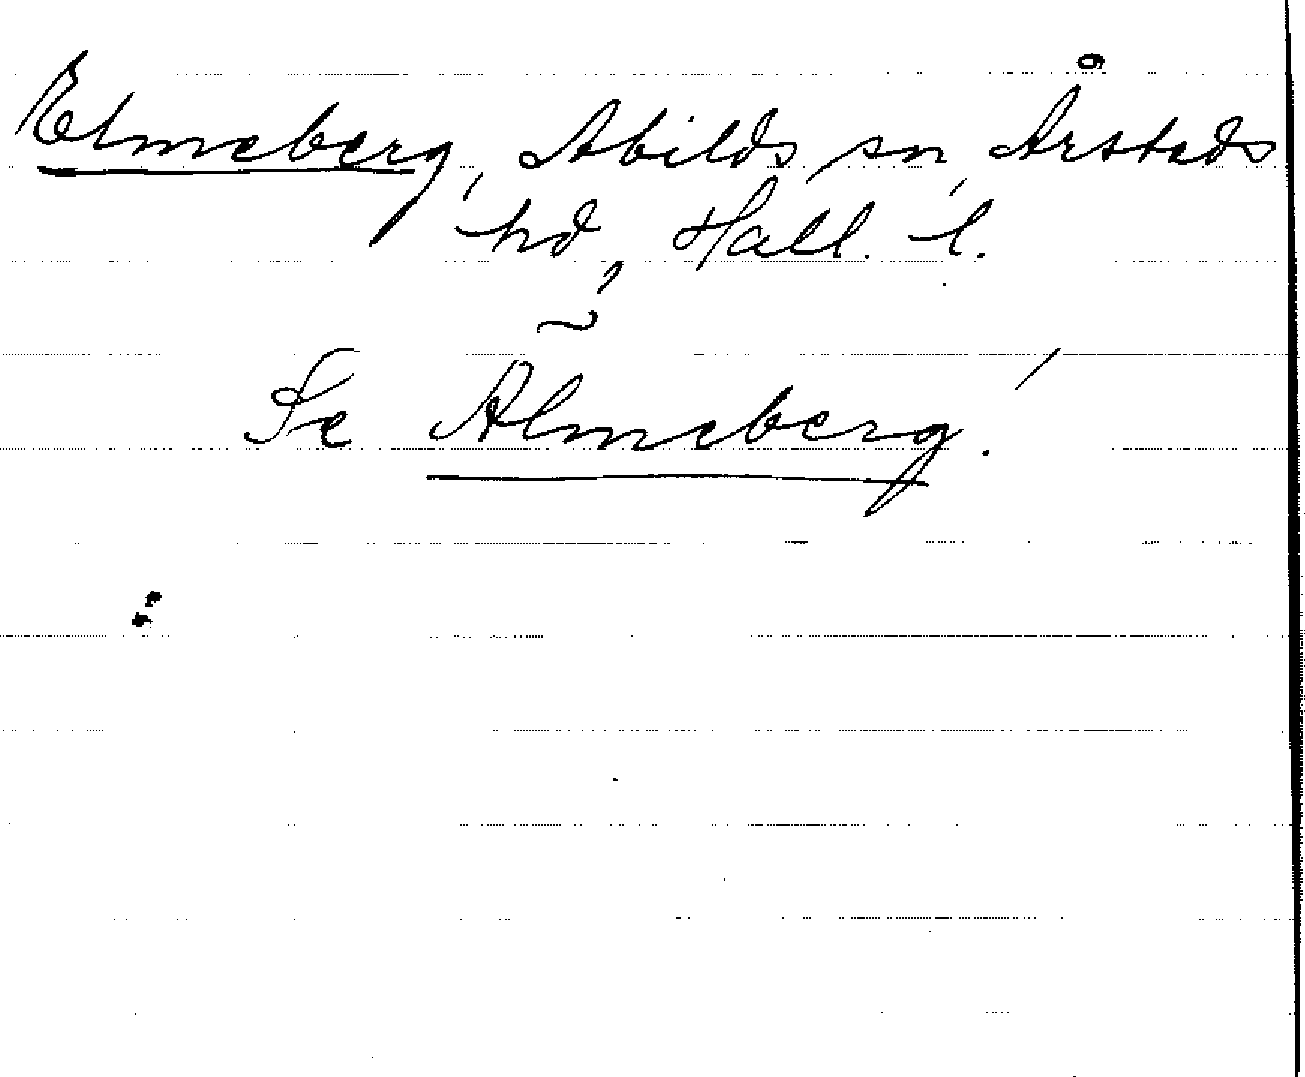 Elmeberg, Abilds sn, Årstads
hd, Hall. l.
Se Älmeberg.